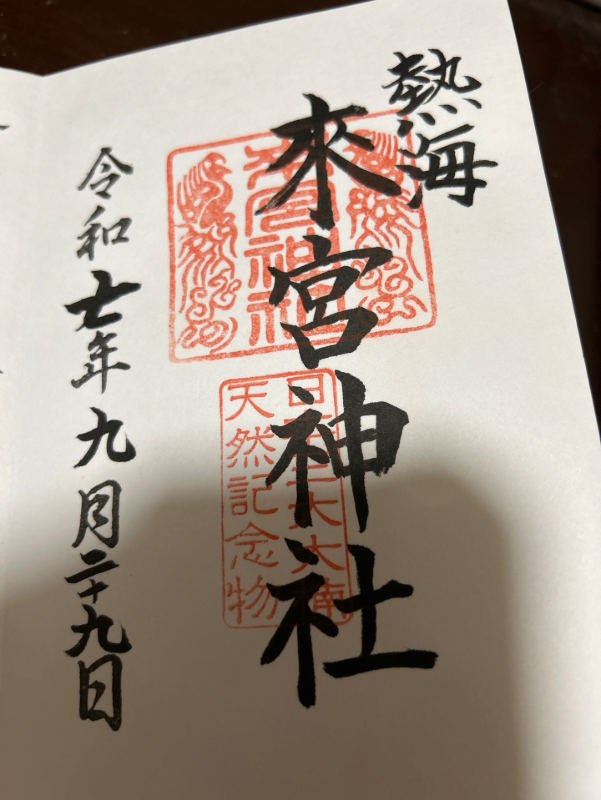 熱海
來宮神社
來宮神社
天然記念物
令和七年九月二十九日